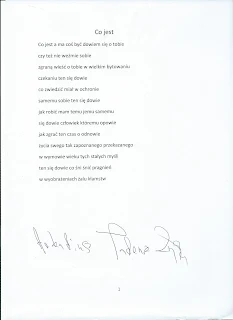 Co jest
Co jest a ma coś być dowiem się o tobie
czy też nie weźmie sobie
zgraną wieść o tobie w wielkim bytowaniu
czekaniu ten się dowie
co zwiedził miał w ochronie
samemu sobie ten się dowie
jak robić mam temu jemu samemu
się dowie człowiek któremu opowie
jak zgrać ten czas o odnowie
życia swego tak zapoznanego przekazanego
w wymowie wieku tych stałych myśli
ten się dowie co śni snić pragnień
w wyobrażeniach żalu kłamstw
1